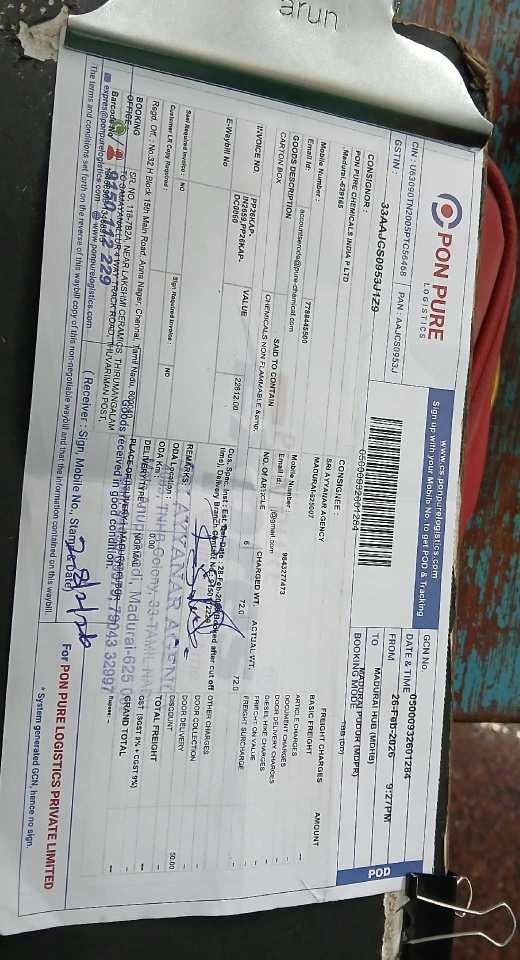 arun
PON PURE
LOGISTICS
www.cs.ponpurelogistics.com
Sign up with your Mobile No. to get POD & Tracking
CIN : U63090TN2005PTC56468
PAN : AAJCS0953J
GSTIN :
33AAJCS0953J1Z9
05000932601284
GCN No.
05000932601284
DATE & TIME
26-Feb-2026 9:27PM
FROM
MADURAI HUB (MDHB)
TO
MADURAI PUDUR (MDPR)
BOOKING MODE
POD
CONSIGNOR :
PON PURE CHEMICALS INDIA P LTD
,Madurai.-629165
Mobile Number :
7788445500
Email Id:
CONSIGNEE :
SRI AYYANAR AGENCY
MADURAI-625007
Mobile Number :
9843277473
Email Id:
@gmail.com
GOODS DESCRIPTION
SAID TO CONTAIN
NO. OF ARTICLE
CHARGED WT.
ACTUAL WT.
CARTON BOX
CHEMICALS NON FLAMMABLE &amp;
6
72.0
72.0
INVOICE NO.
VALUE
22812.00
E-Waybill No
Seal Required Invoice : NO
Sign Required Invoice : NO
Customer LR Copy Required :
FREIGHT CHARGES AMOUNT
BASIC FREIGHT --
ARTICLE CHARGES --
DOCUMENT CHARGES --
DOOR DELIVERY CHARGES --
DIESEL HIKE CHARGES --
FREIGHT ON VALUE --
FREIGHT SURCHARGE --
OTHER CHARGES --
DOOR COLLECTION --
DOOR DELIVERY --
DISCOUNT 50.00
TOTAL FREIGHT --
GST (SGST 9% + CGST 9%) --
GRAND TOTAL --
REMARKS :
ODA Location :
ODA Km : 0.00
DELIVERY TYPE : NORMAL
Regd. Off. : No.32 H Block, 15th Main Road, Anna Nagar, Chennai, Tamil Nadu, 600040
BOOKING
OFFICE
S/C. NO. 118-7B2A, NEAR LAKSHMI CERAMICS, THIRUMANGALAM
TO SAMAYANALLUR 4 WAY TRACK ROAD, THUVARIMAN POST,
Goods received in good condition.
express@ponpurelogistics.com www.ponpurelogistics.com
( Receiver : Sign, Mobile No., Stamp & Date )
28/2/26
For PON PURE LOGISTICS PRIVATE LIMITED
The terms and conditions set forth on the reverse of this waybill copy of this non-negotiable waybill and that the information contained on this waybill.
* System generated GCN, hence no sign.